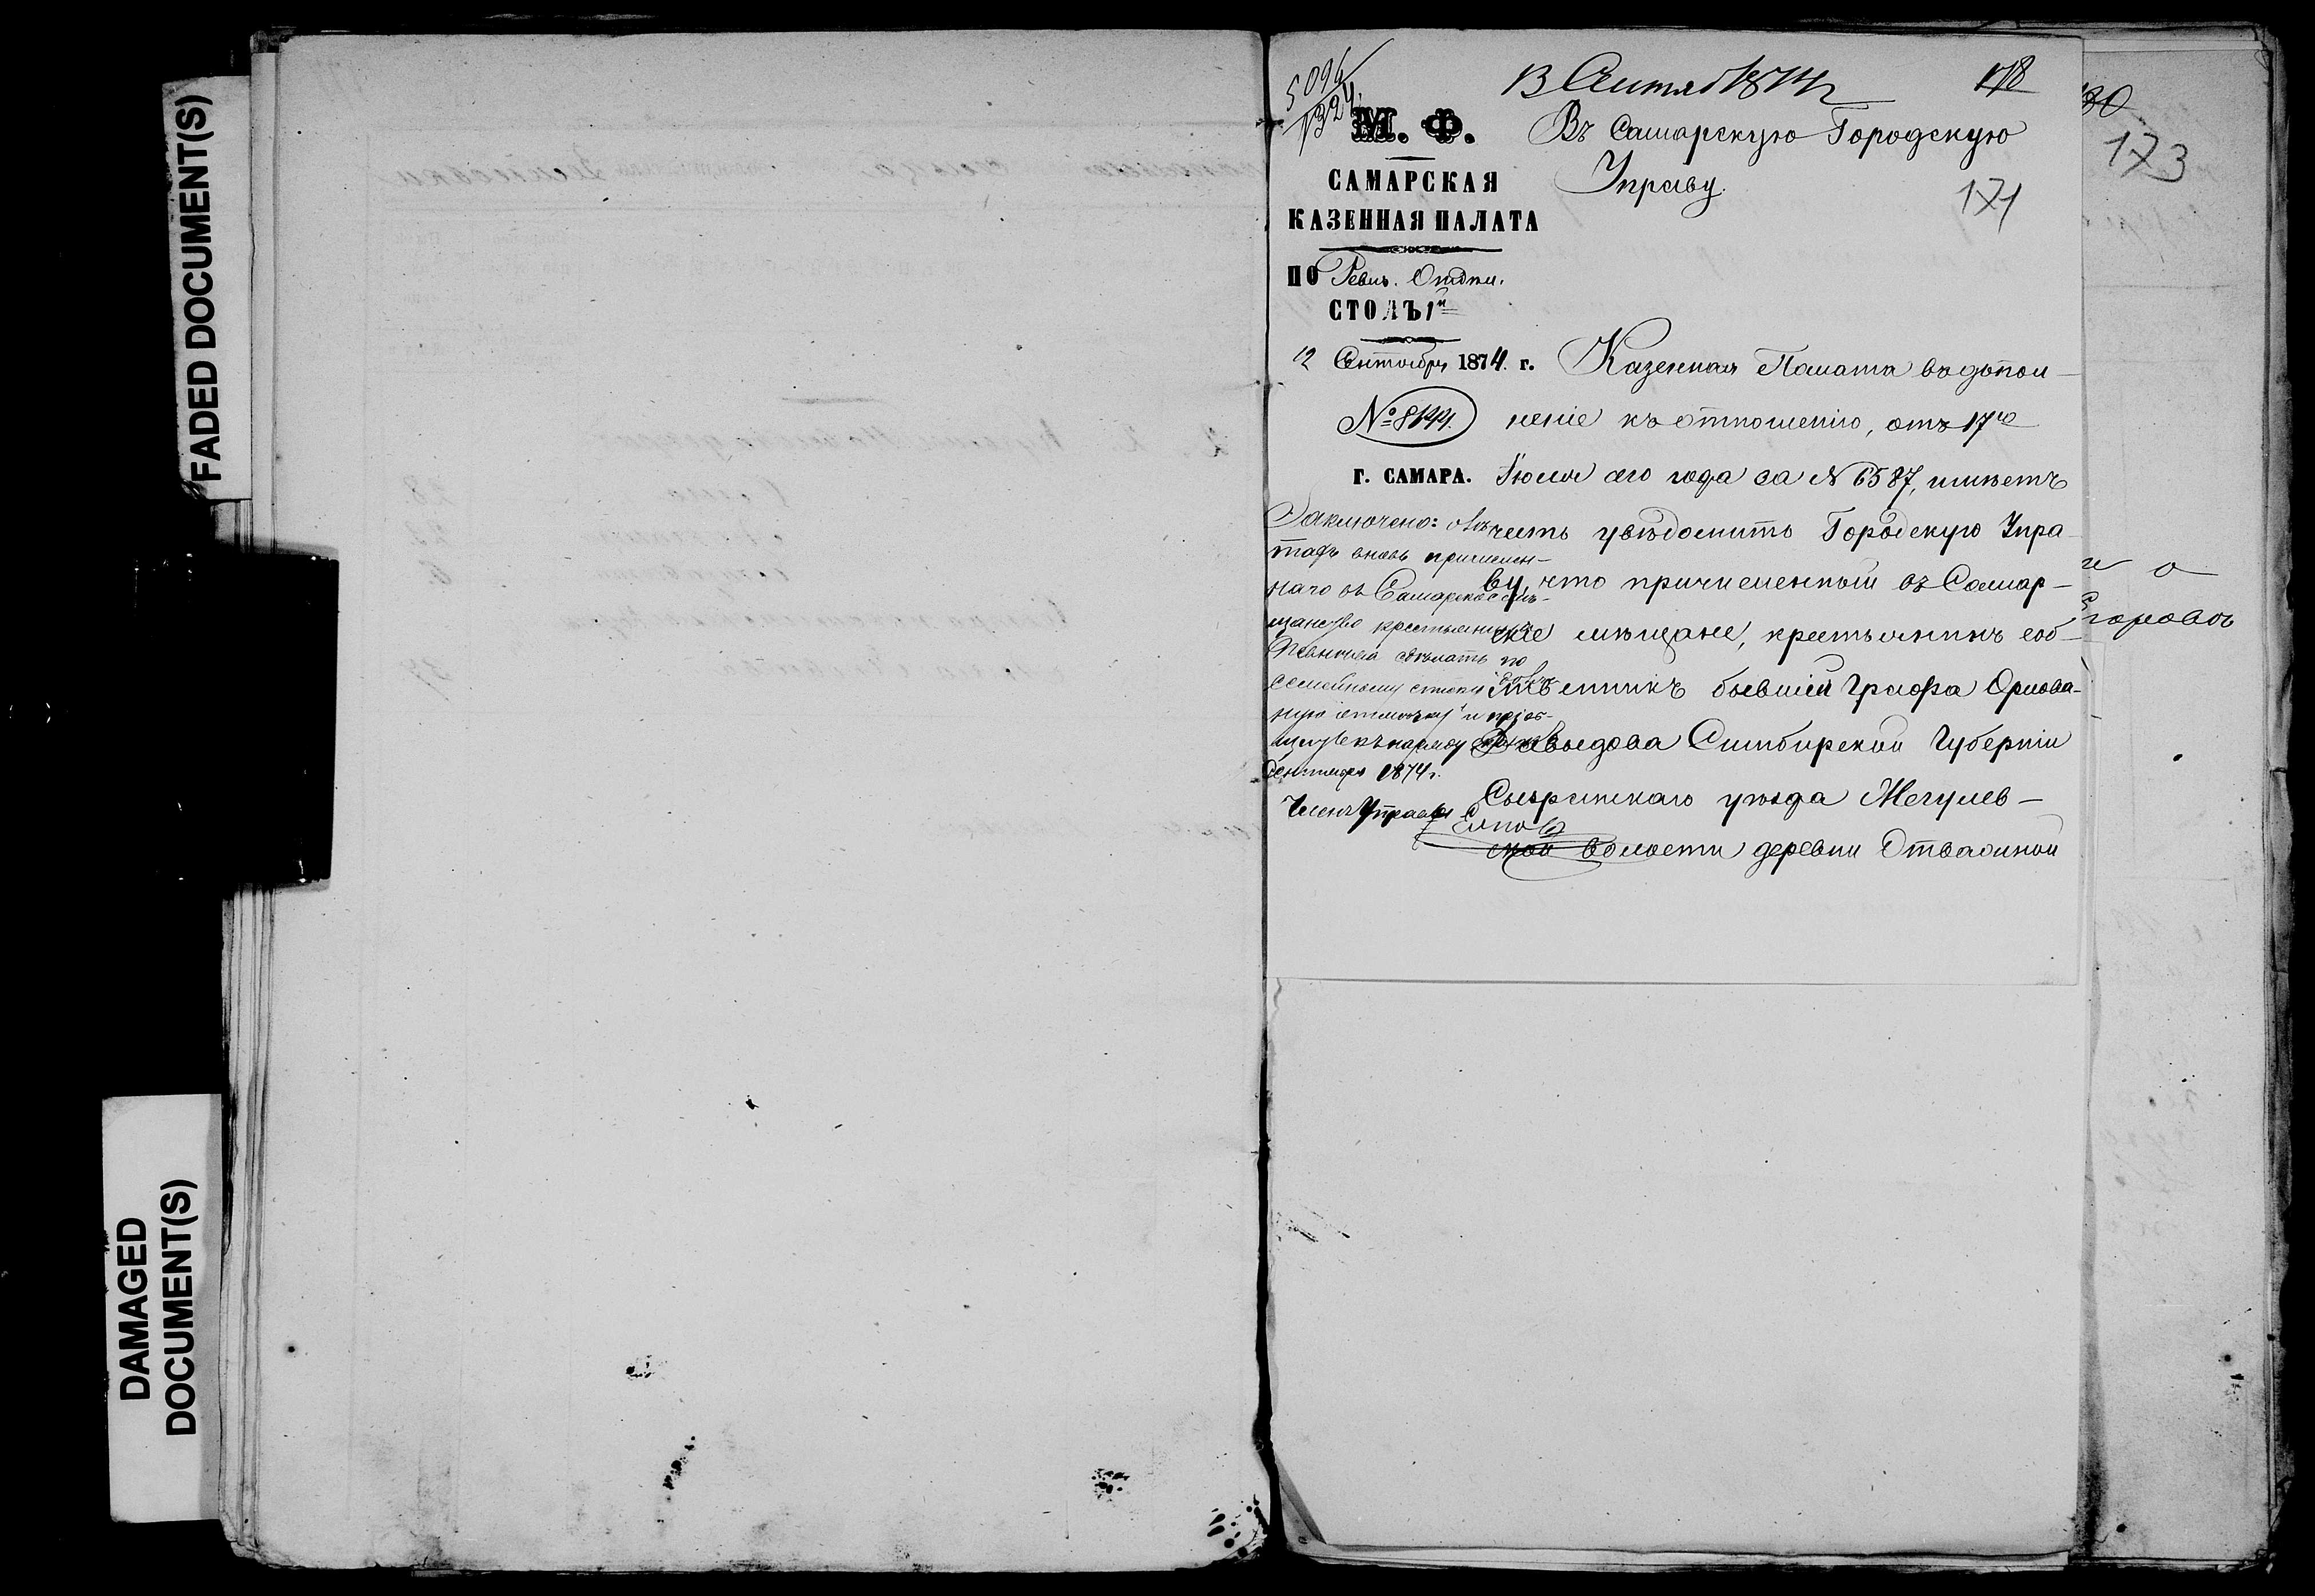 FADED DOCUMENT(S)
DAMAGED
DOCUMENT(S)
5096
1324
13 Сентяб 1874 г
178
171
173
М. Ф.
САМАРСКАЯ
КАЗЕННАЯ ПАЛАТА
ПО Ревиз. Отдѣл.
СТОЛЪ 1й
12 Сентября 1874 г.
№ 8144.
Г. САМАРА.
Въ Самарскую Городскую
Управу.
Казенная Палата въ допол-
неніе къ отношенію, отъ 17го
Іюля сего года за № 6587, имѣетъ
честь увѣдомить Городскую Упра-
ву, что причисленный въ Самар-
скіе мѣщане, крестьянинъ соб-
ственникъ бывшій Графа Орлова-
Давыдова Симбирской Губерніи
Сызранскаго уѣзда Жегулев-
ской волости деревни Отважиной
Заключено: объ
вновь причислен-
наго въ Самарское мѣ-
щанство крестьянина
сдѣлать по
семейному списку
Сентября 1874 г.
Членъ Управы